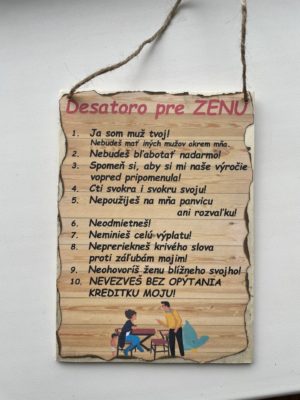 Desatoro pre ŽENU
1. Ja som muž tvoj!
Nebudeš mať iných mužov okrem mňa.
2. Nebudeš bľabotať nadarmo!
3. Spomeň si, aby si mi naše výročie
vopred pripomenula!
4. Cti svokra i svokru svoju!
5. Nepoužiješ na mňa panvicu
ani rozvaľku!
6. Neodmietneš!
7. Neminieš celú výplatu!
8. Nepreriekneš krivého slova
proti záľubám mojim!
9. Neohovoríš ženu blížneho svojho!
10. NEVEZVEŠ BEZ OPÝTANIA
KREDITKU MOJU!